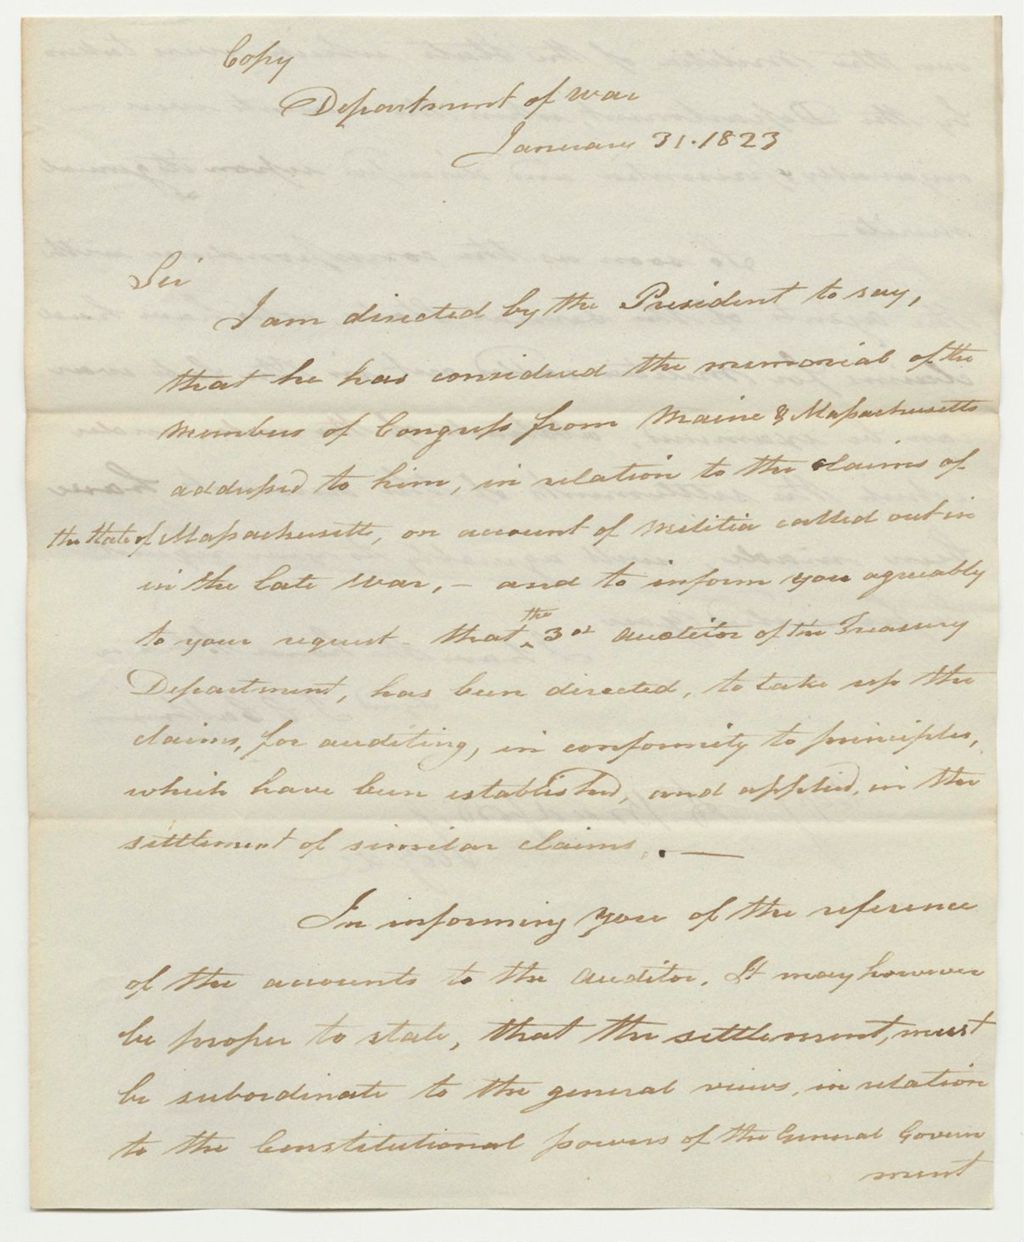 Copy
Department of War
January 31. 1823
Sir
I am directed by the President to say,
that he has considered the memorial of the
members of Congress from Maine & Massachusetts
addressed to him, in relation to the claims of
the State of Massachusetts, on account of militia called out in
in the late war, – and to inform you agreeably
to your request – that the 3rd auditor of the Treasury
Department, has been directed, to take up the
claims, for auditing, in conformity to principles,
which have been established, and applied, in the
settlement of similar claims. —
In informing you of the reference
of the accounts to the Auditor. It may however
be proper to state, that the settlement, must
be subordinate to the general views, in relation
to the Constitutional powers of the General Govern
ment